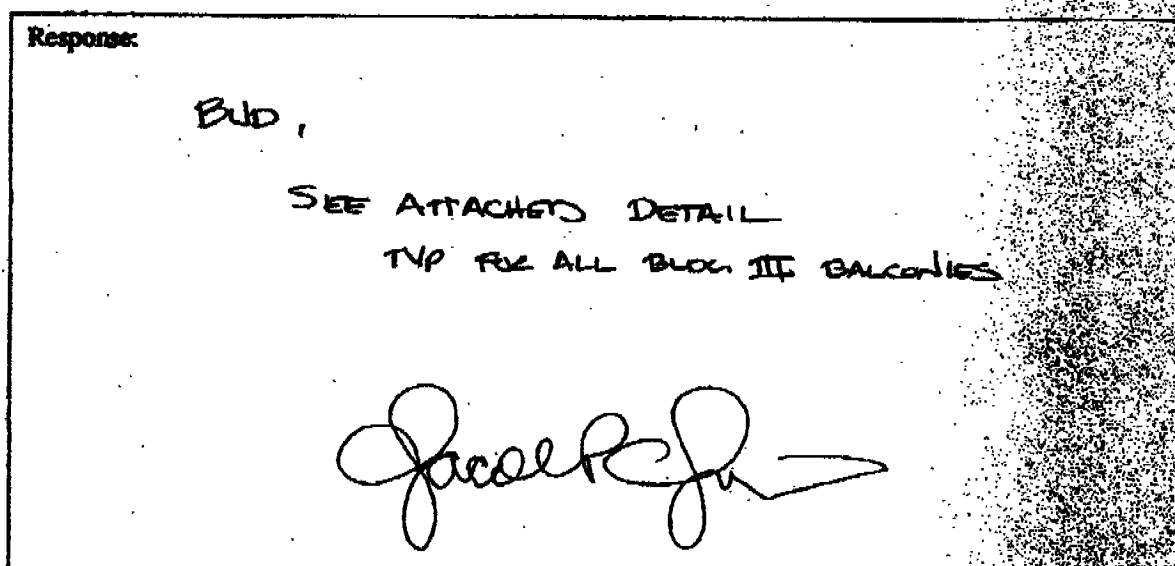 Response:
BUD,
SEE ATTACHED DETAIL
TYP FOR ALL BLDG III BALCONIES